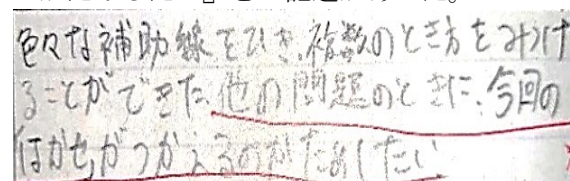 色々な補助線をひき、複数のとき方をみつけ
ることができた。他の問題のときに、今回の
はかせがつかえるのかためしたい